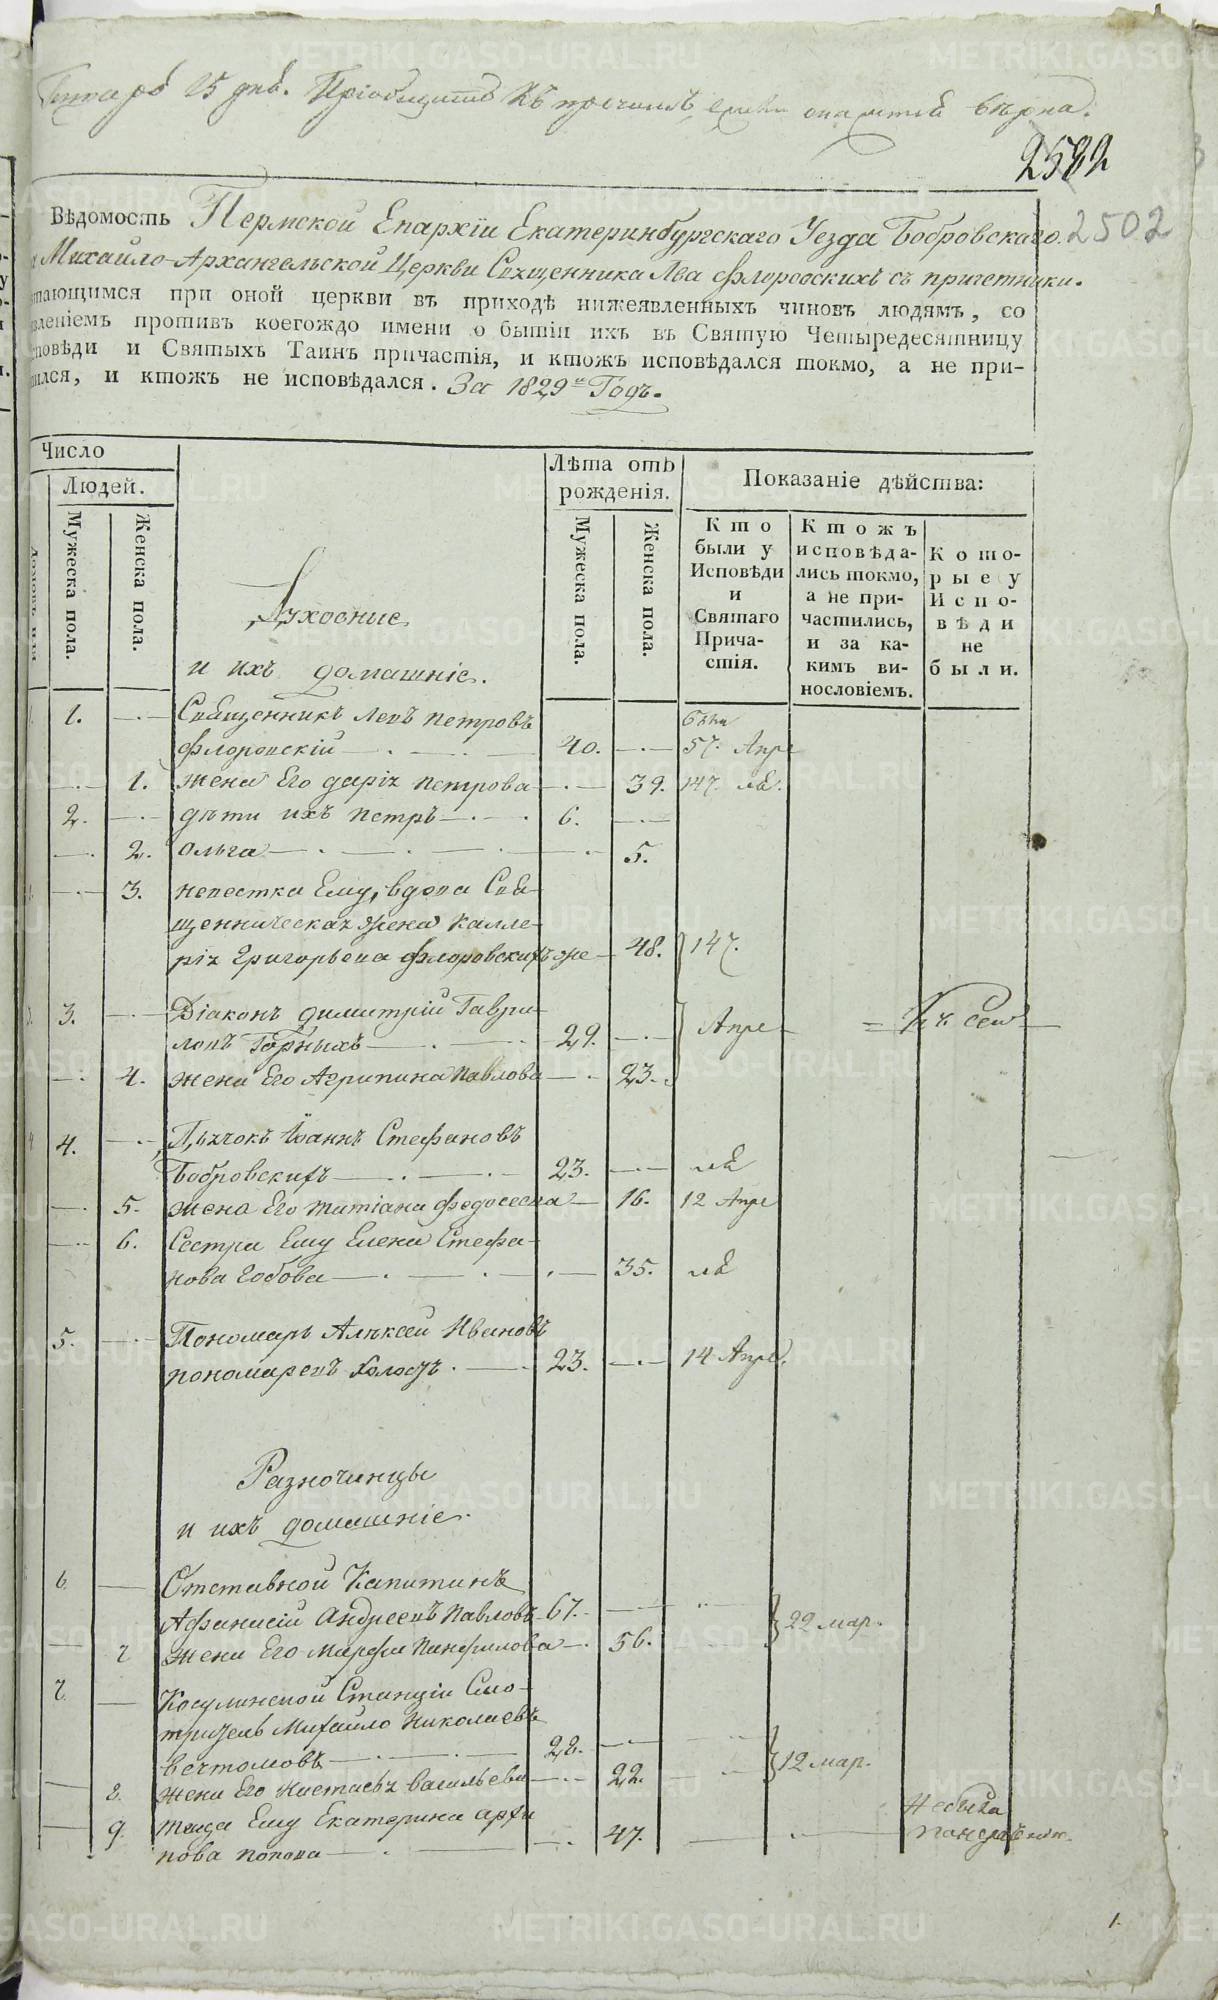 25 Пріобщить къ
2582
2502
Вѣдомость Пермской Епархіи Екатеринбургскаго Уезда Бобровскаго
Михайло-Архангельской Церкви Священника Лва Флоровскихъ съ причетники.
тающимся при оной церкви въ приходѣ нижеявленныхъ чиновъ людямъ, со
вленіемъ противъ коегождо имени о бытіи ихъ въ Святую Четыредесятницу
повѣди и Святыхъ Таинъ причастія, и ктожъ исповѣдался токмо, а не при-
щлся, и ктожъ не исповѣдался. За 1829й Годъ.
Число
Людей.
Мужеска пола.
Женска пола.
Лѣта отъ
рожденія.
Мужеска пола.
Женска пола.
Показаніе дѣйства:
Кто
были у
Исповѣди
и
Святаго
Прича-
стія.
Ктожъ
исповѣда-
лись токмо,
а не при-
частились,
и за ка-
кимъ ви-
нословіемъ.
Кото-
рые у
Испо-
вѣди
не
были.
Духовные
и ихъ домашніе.
1. Священникъ левъ петровъ
флоровскій 40. 57. Апре
1. жена Его даріа петрова 39. 147.
2. дѣти ихъ петръ 6.
2. ольга 5.
3. невестка Ему, вдова Свя-
щенническая жена калле-
ріа Григорьева флоровскихъ же 48. 147.
3. Діаконъ димитрій Гаври-
ловъ Горныхъ 29. Апре
4. жена Его Агрипина павлова 23.
4. Дьячокъ Іоаннъ Стефановъ
Бобровскихъ 23.
5. жена Его татіана федосеева 16. 12 Апре
6. Сестра Ему Елена Стефа-
нова бобова 35.
5. Пономарь Алексей Ивановъ
пономаревъ холостъ. 23. 14 Апре.
Разночинцы
и ихъ домашніе.
6. Отставной Капитанъ
Афанасій Андреевъ павловъ 67. 22 мар.
7 жена Его Марфа панфилова 56.
7. Косулинской Станціи Смо-
тритель Михайло Николаевъ
вечтомовъ 28. 12 мар.
8. жена Его Настасья васильева 22.
9. теща Ему Екатерина архи
пова попова 47. Небыла
1.
METRIKI.GASO-URAL.RU